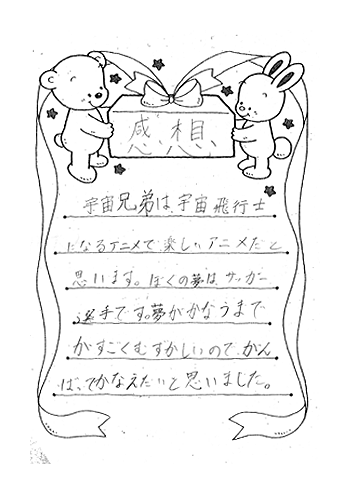 感想
宇宙兄弟は、宇宙飛行士
になるアニメで楽しいアニメだと
思います。ぼくの夢は、サッカー
選手です。夢がかなうまで
がすごくむずかしいので、がん
ば、てかなえたいと思いました。